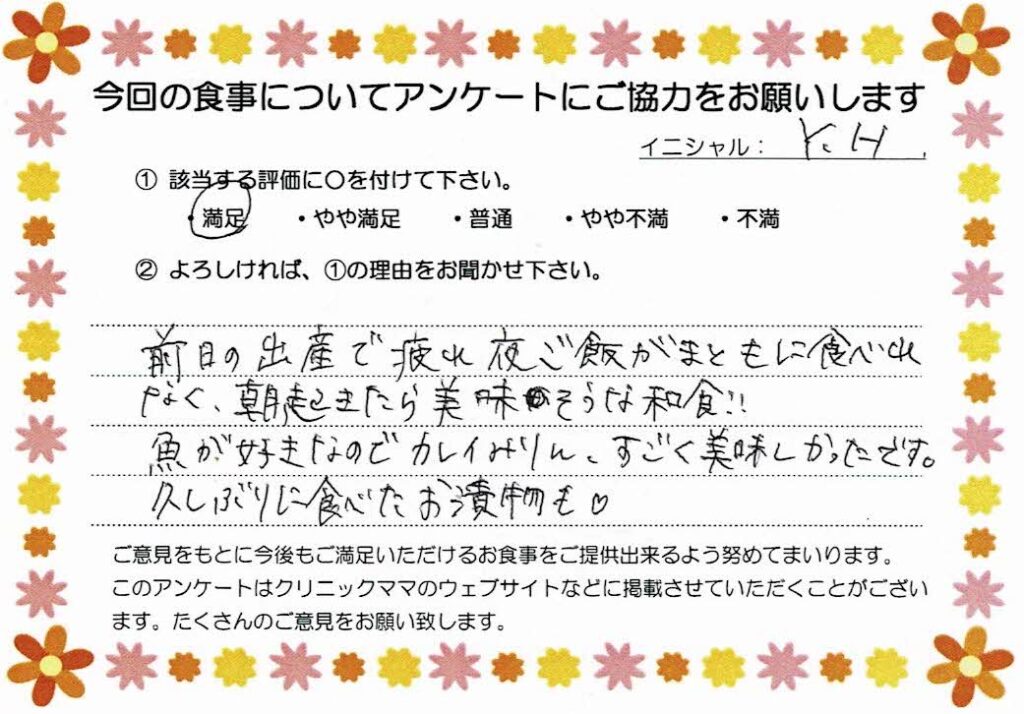 今回の食事についてアンケートにご協力をお願いします
イニシャル： Y.H
① 該当する評価に〇を付けて下さい。
・満足 ・やや満足 ・普通 ・やや不満 ・不満
② よろしければ、①の理由をお聞かせ下さい。
前日の出産で疲れ夜ご飯がまともに食べれ
なく、朝起きたら美味しそうな和食!!
魚が好きなのでカレイみりん、すごく美味しかったです。
久しぶりに食べたお漬物も♡
ご意見をもとに今後もご満足いただけるお食事をご提供出来るよう努めてまいります。
このアンケートはクリニックママのウェブサイトなどに掲載させていただくことがござい
ます。たくさんのご意見をお願い致します。